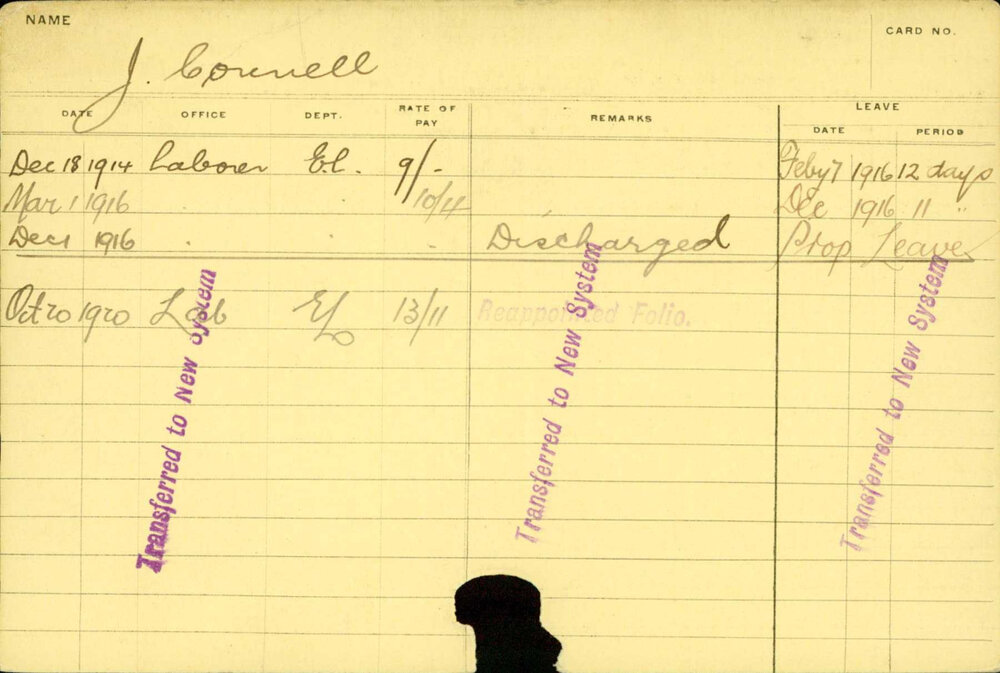 NAME
CARD NO.
J. Connell
DATE OFFICE DEPT. RATE OF PAY REMARKS LEAVE
DATE PERIOD
Dec 18 1914 Laborer El. 9/- Feby 7 1916 12 days
Mar 1 1916 . . 10/4 Dec 1916 11 "
Dec 1 1916 . . . Discharged Prop Leave
Oct 20 1920 Lab EL 13/11 Reappointed Folio.
Transferred to New System
Transferred to New System
Transferred to New System